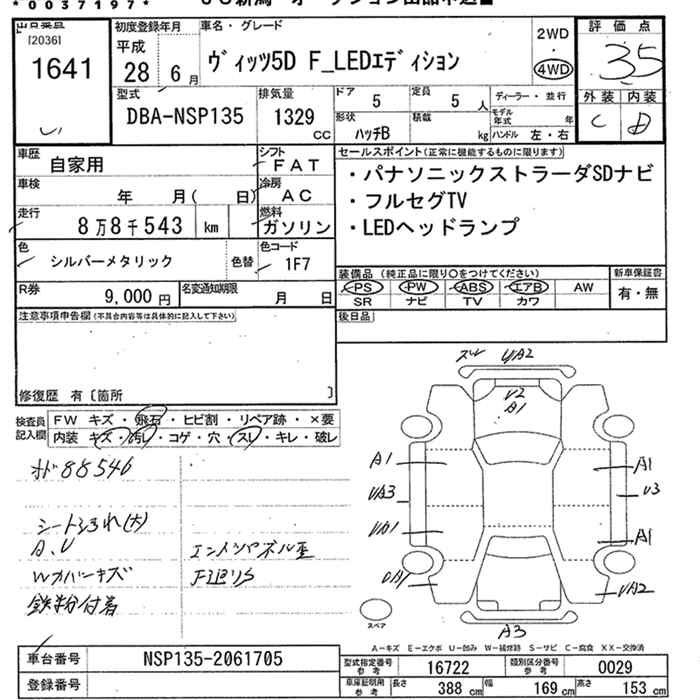 *0037197*
[20361
1641
初度登録年月
平成
28年 6月
車名・グレード
ヴィッツ5D F_LEDエディション
2WD
4WD
評価点
3.5
外装 内装
C D
型式
DBA-NSP135
排気量
1329 cc
ドア 5
定員 5人
形状 ハッチB
積載 kg
ディーラー・並行
モデル年式 年
ハンドル 左・右
車歴 自家用
シフト FAT
車検 年 月( 日)
冷房 AC
走行 8万8千543 km
燃料 ガソリン
色 シルバーメタリック
色替
色コード 1F7
R券 9,000円
名変通知期限 月 日
セールスポイント(正常に機能するものに限ります)
・パナソニックストラーダSDナビ
・フルセグTV
・LEDヘッドランプ
装備品(純正品に限り○をつけてください)
新車保証書
PS PW ABS エアB AW
SR ナビ TV カワ
有・無
注意事項申告欄(不具合内容等は具体的に記入して下さい)
後日品
修復歴 有〔箇所 〕
検査員記入欄
FW キズ・飛石・ヒビ割・リペア跡・×要
内装 キズ・汚レ・コゲ・穴・スレ・キレ・破レ
オド88546
シートよごれ(大)
A、U
Wカバーキズ
鉄粉付着
ズレ UA2
U2
A1
A1 A1
UA3 U3
UA1 A1
UA1 UA2
A3
スペア
A-キズ E-エクボ U-凹み W-補修跡 S-サビ C-腐食 XX-交換済
車台番号 NSP135-2061705
登録番号
型式指定番号参考 16722
類別区分番号参考 0029
車庫証明用参考 長さ 388cm 幅 169cm 高さ 153cm